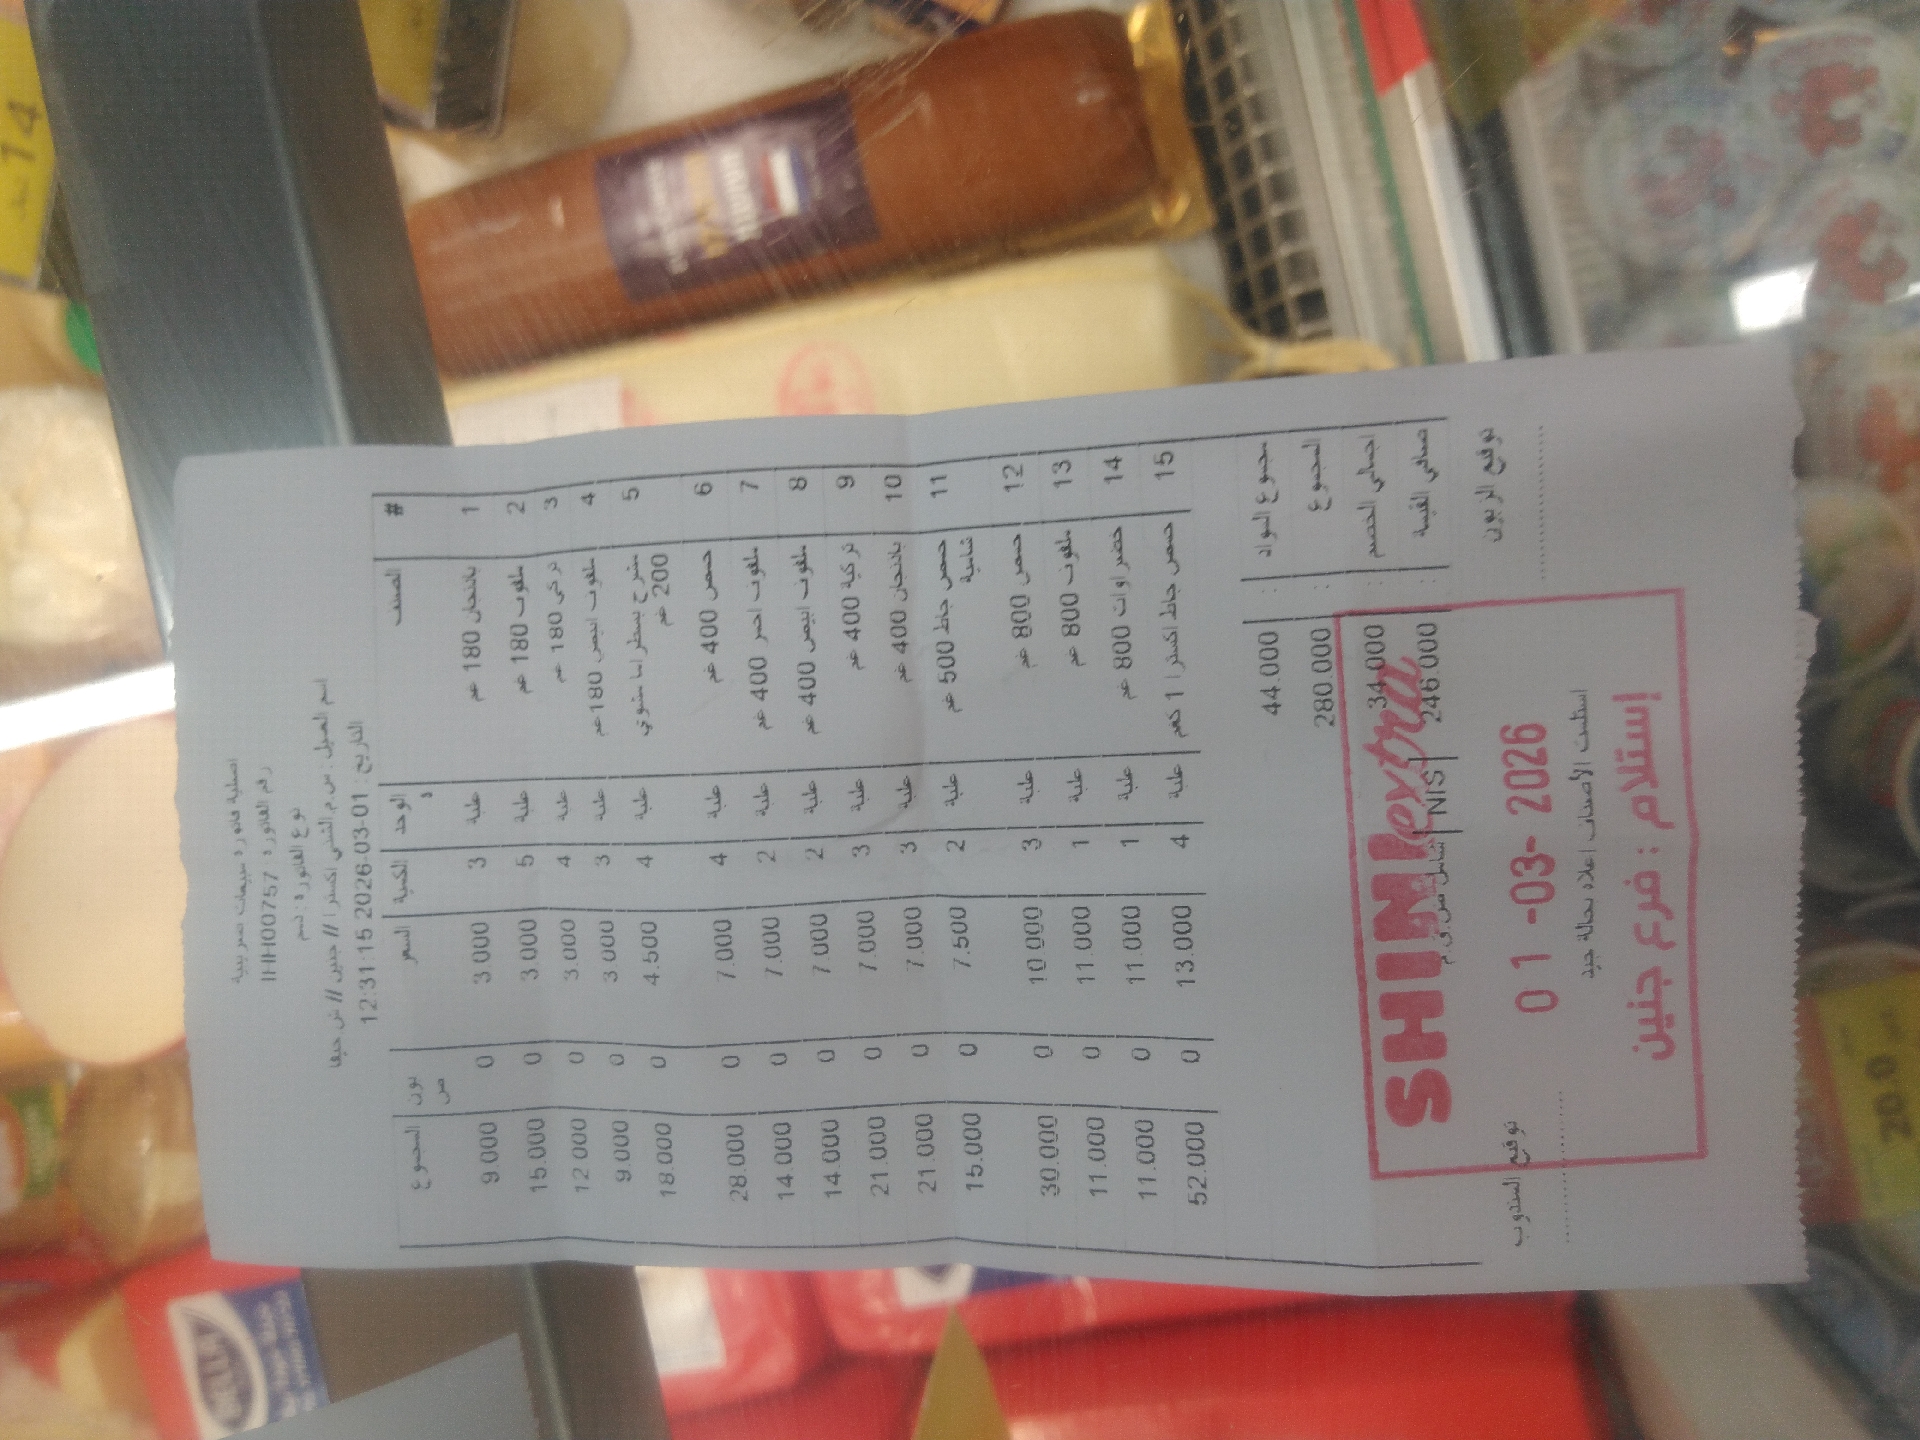 اصلية فاتورة مبيعات ضريبية
رقم الفاتورة IHH00757
نوع الفاتورة : ذمم
اسم العميل : س م الشني اكسترا // جنين // ش حيفا
التاريخ : 2026-03-01 12:31:15
# الصنف الوحدة الكمية السعر بونص المجموع
1 باذنجان 180 غم علبة 3 3.000 0 9.000
2 ملفوف 180 غم علبة 5 3.000 0 15.000
3 تركي 180 غم علبة 4 3.000 0 12.000
4 ملفوف ابيض 180غم علبة 3 3.000 0 9.000
5 مشرح بسطرما مشوي 200 غم علبة 4 4.500 0 18.000
6 حمص 400 غم علبة 4 7.000 0 28.000
7 ملفوف احمر 400 غم علبة 2 7.000 0 14.000
8 ملفوف ابيض 400 غم علبة 2 7.000 0 14.000
9 تركية 400 غم علبة 3 7.000 0 21.000
10 باذنجان 400 غم علبة 3 7.000 0 21.000
11 حمص جاط 500 غم شامية علبة 2 7.500 0 15.000
12 حمص 800 غم علبة 3 10.000 0 30.000
13 ملفوف 800 غم علبة 1 11.000 0 11.000
14 خضراوات 800 غم علبة 1 11.000 0 11.000
15 حمص جاط اكسترا 1 كغم علبة 4 13.000 0 52.000
مجموع المواد : 44.000
المجموع : 280.000
اجمالي الخصم : 34.000
صافي القيمة : 246.000 NIS شامل ض.ق.م
SHINI extra
توقيع الزبون
توقيع المندوب
01-03-2026
استلمت الأصناف اعلاه بحالة جيد
إستلام : فرع جنين
14
20.0